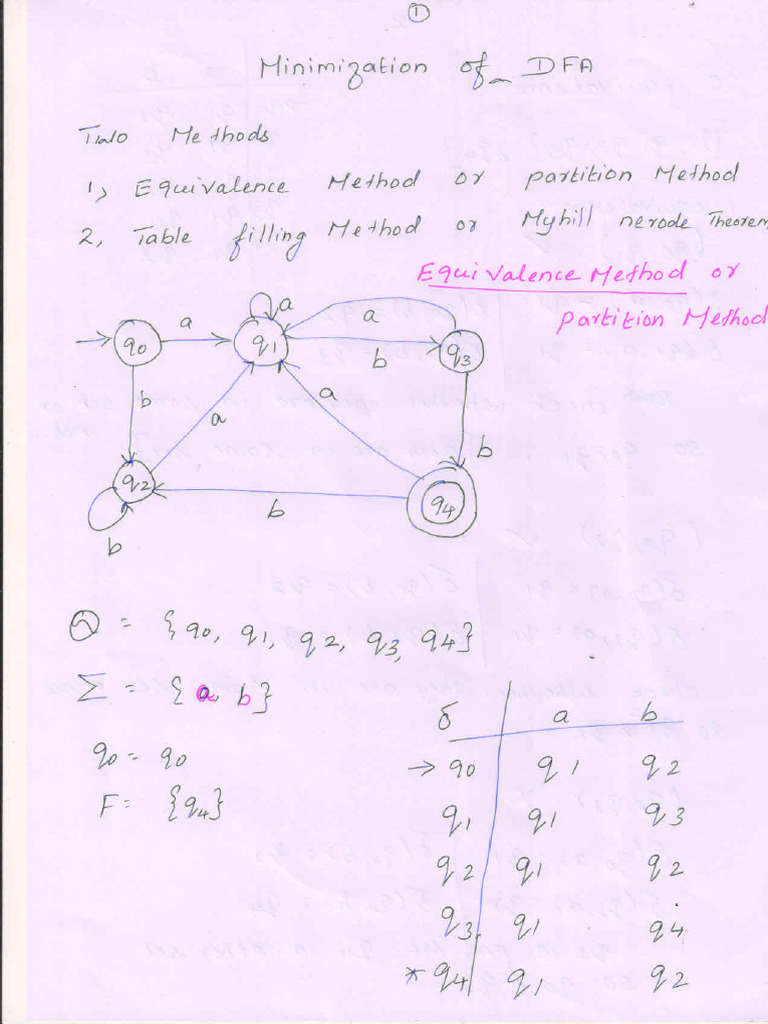 1
Minimization of DFA
Two Methods
1, Equivalence Method or partition Method
2, Table filling Method or Myhill nerode Theorem
Equivalence Method or
partition Method
q0 a q1 a a b q3
b a a b
q2 b q4
b
Q = {q0, q1, q2, q3, q4}
Σ = {a, b}
q0 = q0
F = {q4}
δ a b
→ q0 q1 q2
q1 q1 q3
q2 q1 q2
q3 q1 q4
* q4 q1 q2